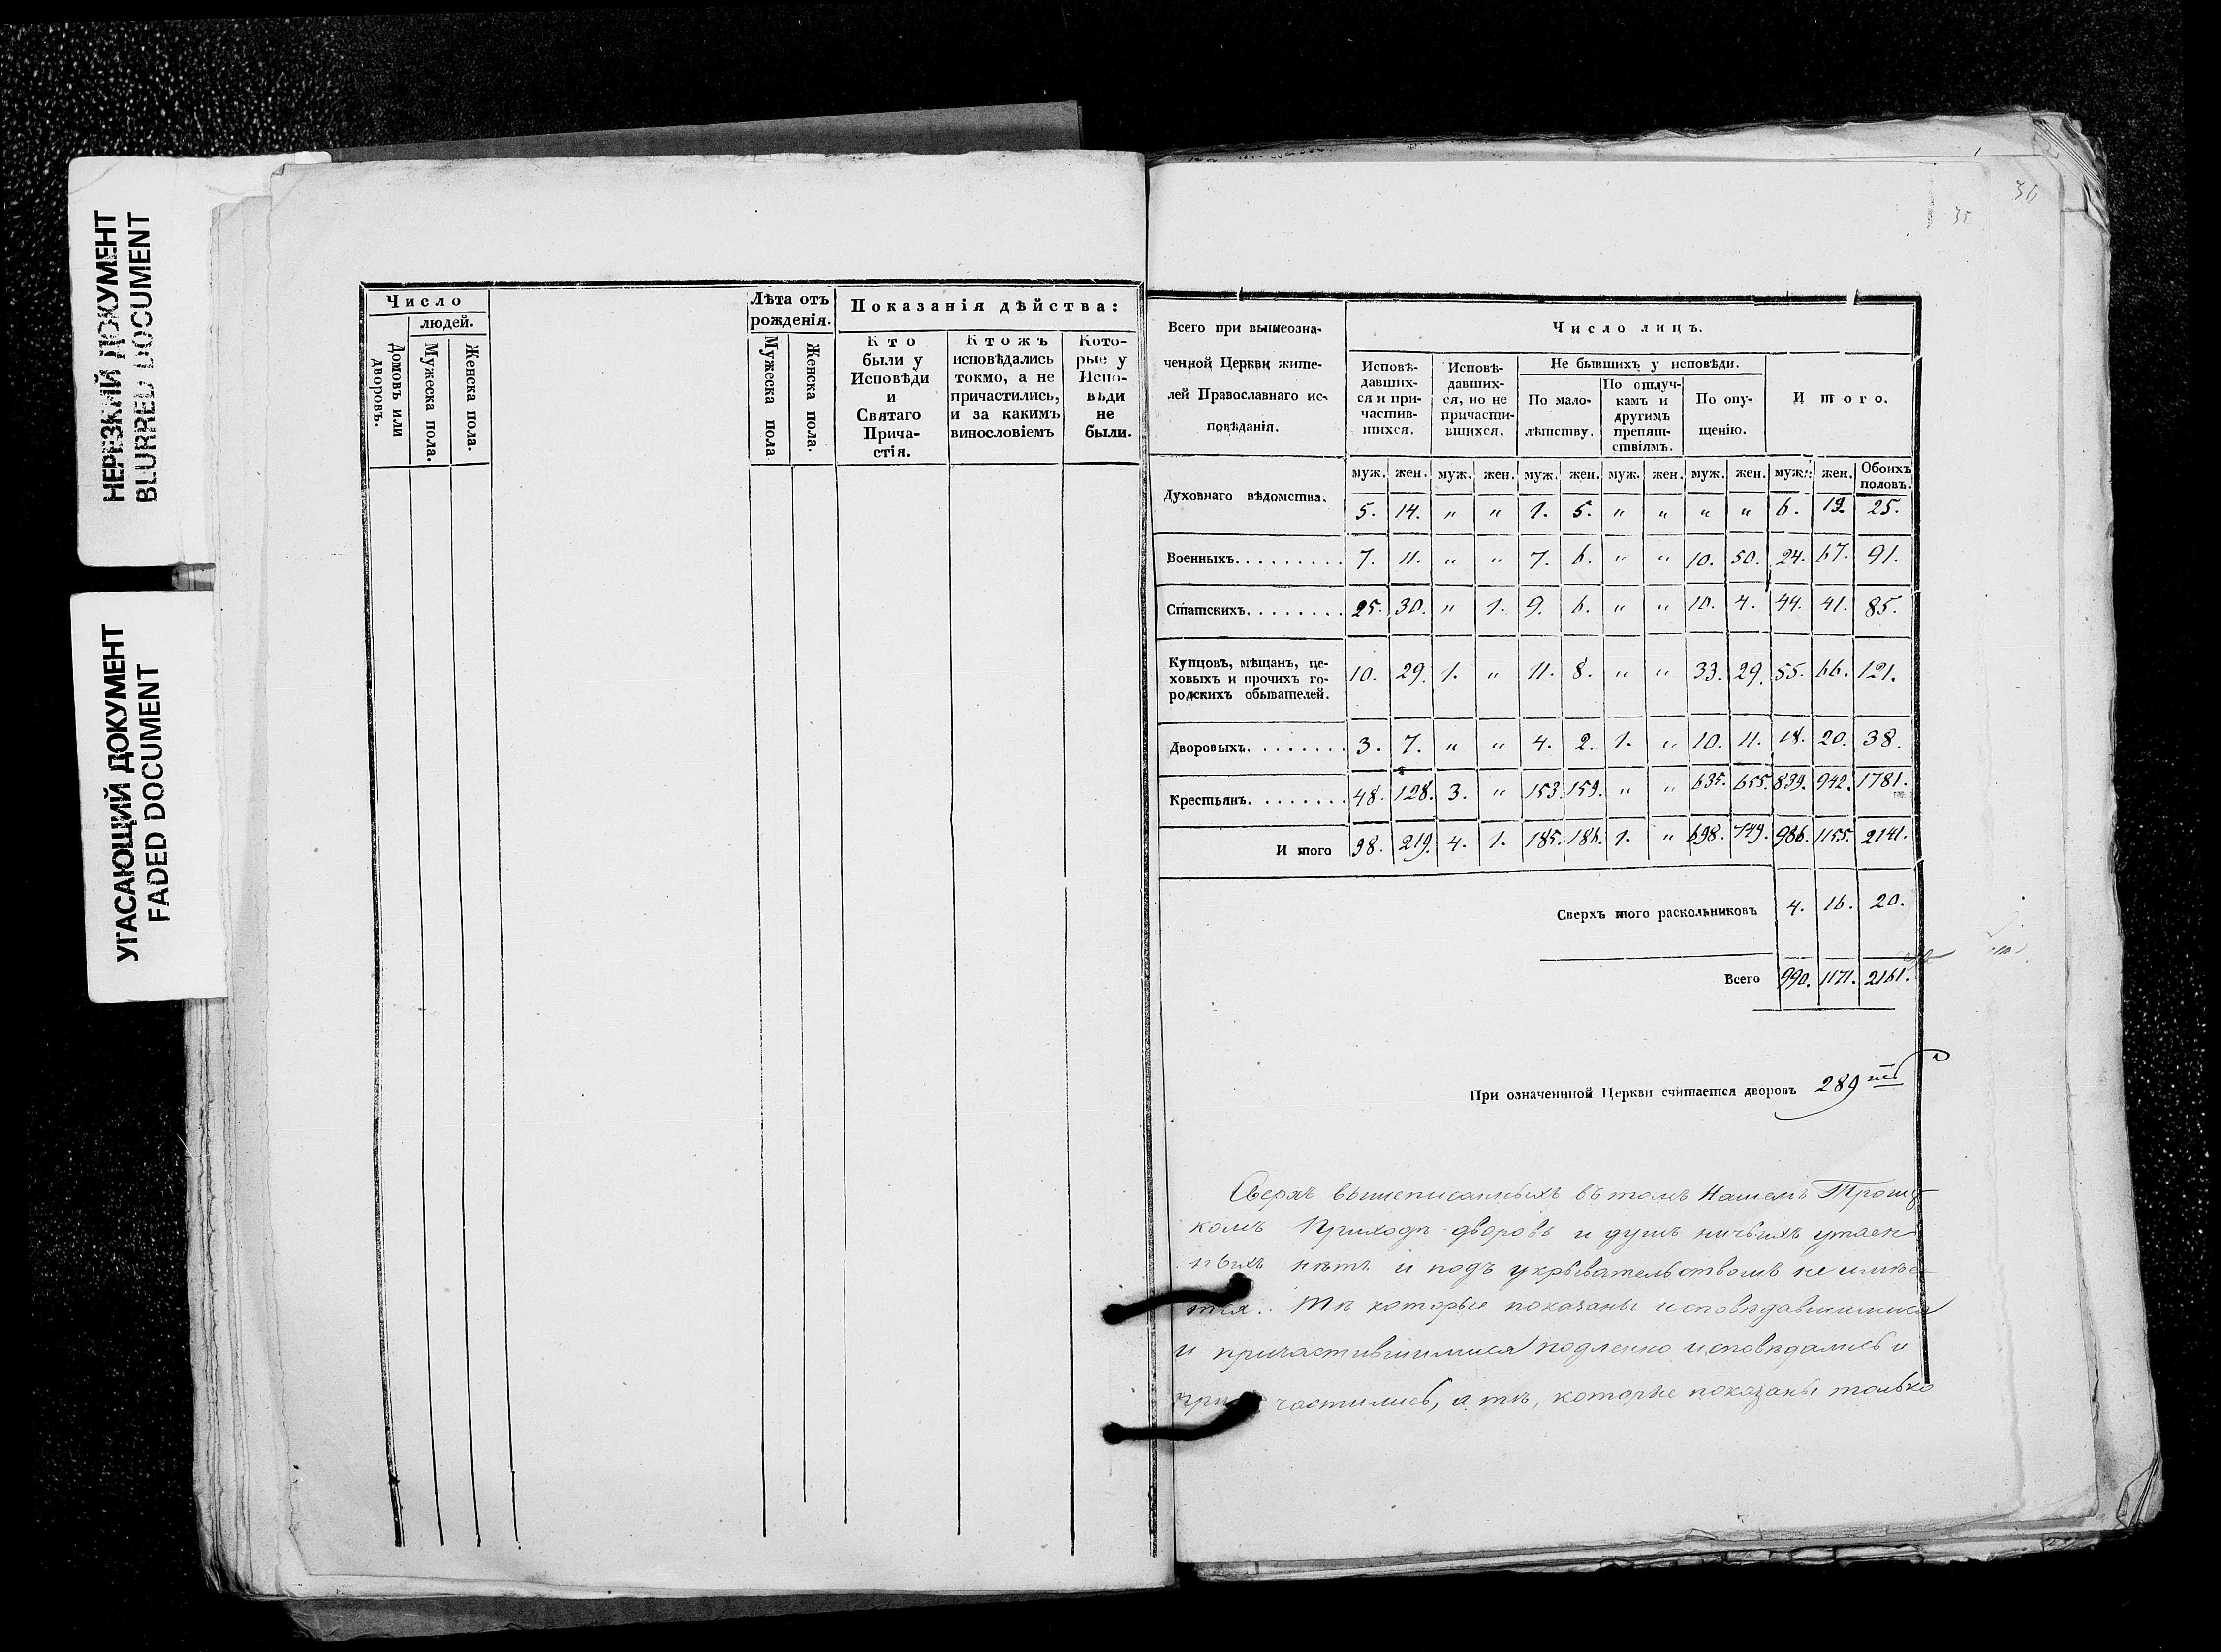 НЕРЕЗКИЙ ДОКУМЕНТ
BLURRED DOCUMENT
УГАСАЮЩИЙ ДОКУМЕНТ
FADED DOCUMENT
Число
людей.
Домовъ или дворовъ.
Мужеска пола.
Женска пола.
Лѣта отъ
рожденія.
Мужеска пола
Женска пола.
Показанія дѣйства:
Кто
были у
Исповѣди
и
Святаго
Прича-
стія.
Ктожъ
исповѣдались
токмо, а не
причастились,
и за какимъ
винословіемъ
Кото-
рые у
Испо-
вѣди
не
были.
36
35
Всего при вышеозна-
ченной Церкви жите-
лей Православнаго ис-
повѣданія.
Число лицъ.
Исповѣ-
давших-
ся и при-
частив-
шихся.
Исповѣ-
давших-
ся, но не
причасти-
вшихся.
Не бывшихъ у исповѣди.
По мало-
лѣтству.
По отлуч-
камъ и
другимъ
препят-
ствіямъ.
По опу-
щенію.
Итого.
муж. жен. муж. жен. муж. жен. муж. жен. муж. жен. муж. жен. Обоихъ половъ.
Духовнаго вѣдомства. 5. 14. " " 1. 5. " " " " 6. 19. 25.
Военныхъ......... 7. 11. " " 7. 6. " " 10. 50. 24. 67. 91.
Статскихъ........ 25. 30. " 1. 9. 6. " " 10. 4. 44. 41. 85.
Купцовъ, мѣщанъ, це-
ховыхъ и прочихъ го-
родскихъ обывателей. 10. 29. 1. " 11. 8. " " 33. 29. 55. 66. 121.
Дворовыхъ........ 3. 7. " " 4. 2. 1. " 10. 11. 18. 20. 38.
Крестьянъ........ 48. 128. 3. " 153. 159. " " 635. 655. 839. 942. 1781.
Итого 98. 219. 4. 1. 185. 186. 1. " 698. 749. 986. 1155. 2141.
Сверхъ того раскольниковъ 4. 16. 20.
Всего 990. 1171. 2161.
При означенной Церкви считается дворовъ 289
Сверхъ вышеписанныхъ въ томъ Нашемъ
комъ Приходѣ дворовъ и душъ ничьихъ утаен
ныхъ нѣтъ и подъ укрывательствомъ не имѣе
тся. Тѣ которые показаны исповѣдавшимися
и причастившимися подленно исповѣдались и
при частились, а тѣ, которые показаны только